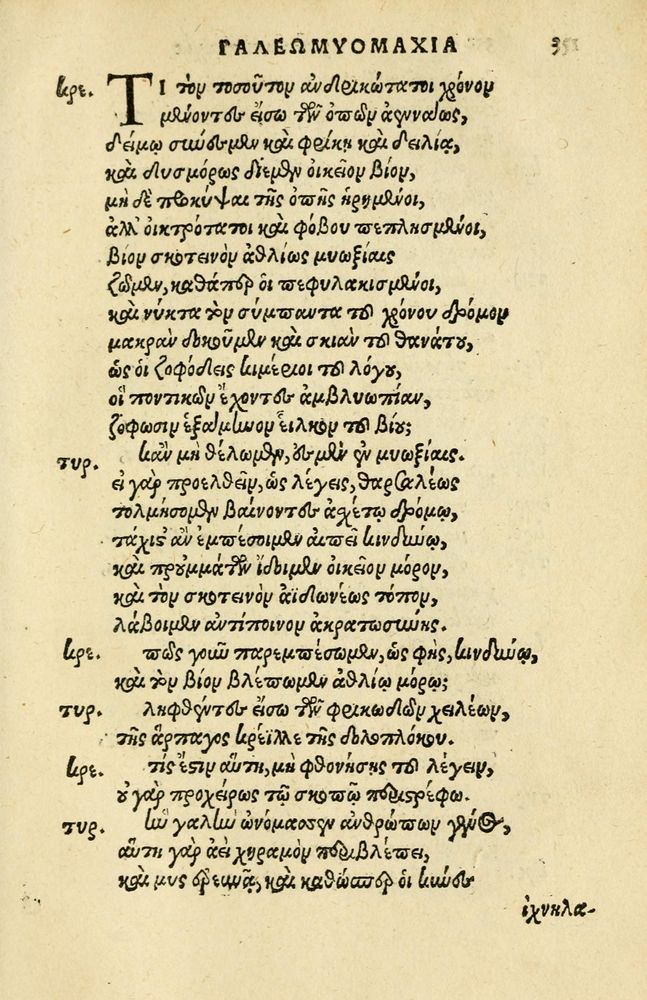 ΓΑΛΕΩΜΥΟΜΑΧΙΑ 351
κρε. ΤΙ τὸν τοσοῦτον ἀνδρικώτατοι χρόνον
μένοντες εἴσω τῶν ὀπῶν ἀενναέως,
δείμῳ σύνεσμεν καὶ φρίκῃ καὶ δειλίᾳ,
καὶ δυσμόρως δίεμεν οἰκεῖον βίον,
μὴ δὲ προκύψαι τῆς ὀπῆς ᾑρημένοι,
ἀλλ' οἰκτρότατοι καὶ φόβου πεπλησμένοι,
βίον σκοτεινὸν ἀθλίως μυωξίαις
ζῶμεν, καθάπερ οἱ πεφυλακισμένοι,
καὶ νύκτα τὸν σύμπαντα τοῦ χρόνου δρόμον
μακρὰν δοκοῦμεν καὶ σκιὰν τοῦ θανάτου,
ὡς οἱ ζοφώδεις κιμέριοι τοῦ λόγου,
οἳ ποντικῶν ἔχοντες ἀμβλυωπίαν,
ζόφωσιν ἑξαμηνον εἷλκον τοῦ βίου;
τυρ. κἂν μὴ θέλωμεν, ἐσμὲν ἐν μυωξίαις.
εἰ γὰρ προελθεῖν, ὡς λέγεις, θαρσαλέως
τολμήσομεν βαίνοντες ἀχέτῳ δρόμῳ,
τάχιστ' ἂν ἐμπέσοιμεν αἰπεῖ κινδύνῳ,
καὶ πρὸ ὀμμάτων ἴδοιμεν οἰκεῖον μόρον,
καὶ τὸν σκοτεινὸν ἀϊδωνέως τόπον,
λάβοιμεν ἀντίποινον ἀκρατωσύνης.
κρε. πῶς γοῦν παρεμπέσωμεν, ὡς φῂς, κινδύνῳ,
καὶ τὸν βίον βλέπωμεν ἀθλίῳ μόρῳ;
τυρ. ληφθέντες εἴσω τῶν φρικωδῶν χειλέων,
τῆς ἅρπαγος κρέϊλλε τῆς δολοπλόκου.
κρε. τίς ἔστιν αὕτη, μὴ φθονήσῃς τοῦ λέγειν,
οὐ γὰρ προχείρως τῷ σκοπῷ περιστρέφω.
τυρ. ἣν γαλῆν ὠνόμασεν ἀνθρώπων γένος,
αὕτη γὰρ ἀεὶ χηραμὸν περιβλέπει,
καὶ μῦς ἐρευνᾷ, καὶ καθώσπερ οἱ κύνες
ἰχνηλα-